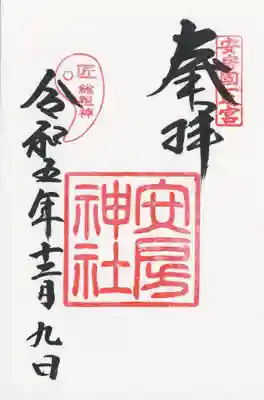 奉拝
安房國一宮
安房
神社
匠
総祖神
令和五年十二月九日